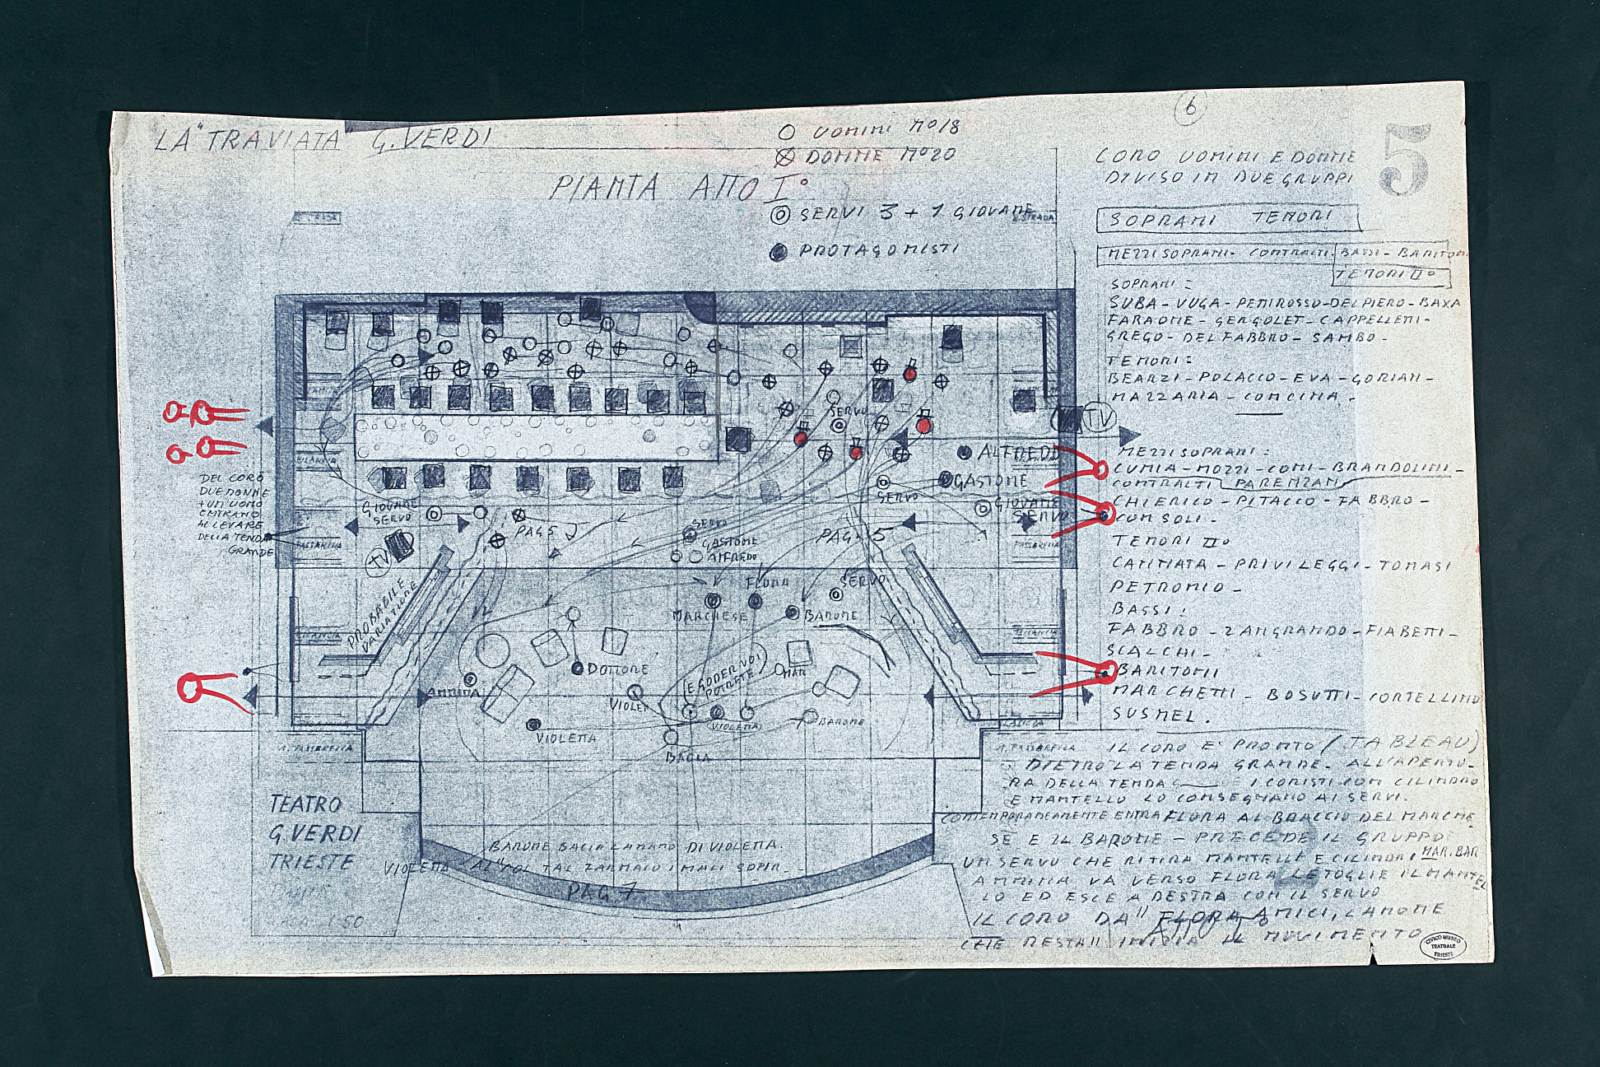 LA "TRAVIATA G. VERDI
PIANTA ATTO I°
O UOMINI N° 18
DONNE N° 20
SERVI 3 + 1 GIOVANE
PROTAGONISTI
6
5
CORO UOMINI E DONNE
DIVISO IN DUE GRUPPI
SOPRANI TENORI
MEZZISOPRANI - CONTRALTI - BASSI - BARITONI
TENORI II°
SOPRANI:
SUBA - VUGA - PETTIROSSO - DEL PIERO - BAXA
FARAONE - GERGOLET - CAPPELLETTI -
GREGO - DEL FABBRO - SAMBO -
TENORI:
BEARZI - POLACCO - EVA - GORIAN -
MAZZARIA - CONCINA -
MEZZISOPRANI:
CUMIA - MOZZI - COMI - BRANDOLINI -
CONTRALTI PARENZAN
CHIERICO - PITACCO - FABBRO -
CONSOLI -
TENORI II°
CANTIATA - PRIVILEGGI - TOMASI
PETRONIO -
BASSI:
FABBRO - ZANGRANDO - FIABETTI -
SCALCHI -
BARITONI
MARCHETTI - BOSUTTI - CORTELLINO
SUSMEL.
IL CORO E' PRONTO (TABLEAU)
DIETRO LA TENDA GRANDE. ALL'APERTU-
RA DELLA TENDA I CORISTI CON CILINDRO
E MANTELLO LO CONSEGNANO AI SERVI.
CONTEMPORANEAMENTE ENTRA FLORA AL BRACCIO DEL MARCHE
SE E IL BARONE - PRECEDE IL GRUPPO
UN SERVO CHE RITIRA MANTELLI E CILINDRI MAR. BAR
ANNINA VA VERSO FLORA LE TOGLIE IL MANTEL
LO ED ESCE A DESTRA CON IL SERVO
IL CORO DA "FLORA AMICI, LA NOTTE
CHE RESTA" INIZIA IL MOVIMENTO
ATTO I°
DEL CORO
DUE DONNE
+ UN UOMO
ENTRANO
AL LEVARE
DELLA TENDA
GRANDE
SERVO
TV
ALFREDO
GASTONE
SERVO
GIOVANE
SERVO
GIOVANE
SERVO
PAG 5
PAG. 5
TV
PROBABILE
VARIAZIONE
SERVO
GASTONE
ALFREDO
FLORA
SERVO
MARCHESE
BARONE
DOTTORE
ANNINA
VIOLET
(E GODER VOI
POTRETE)
MAR
VIOLETTA
VIOLETTA
BARONE
BACIA
BARONE BACIA LA MANO DI VIOLETTA.
PAG 7
TEATRO
G. VERDI
TRIESTE
1:50
CIVICO MUSEO
TEATRALE
TRIESTE